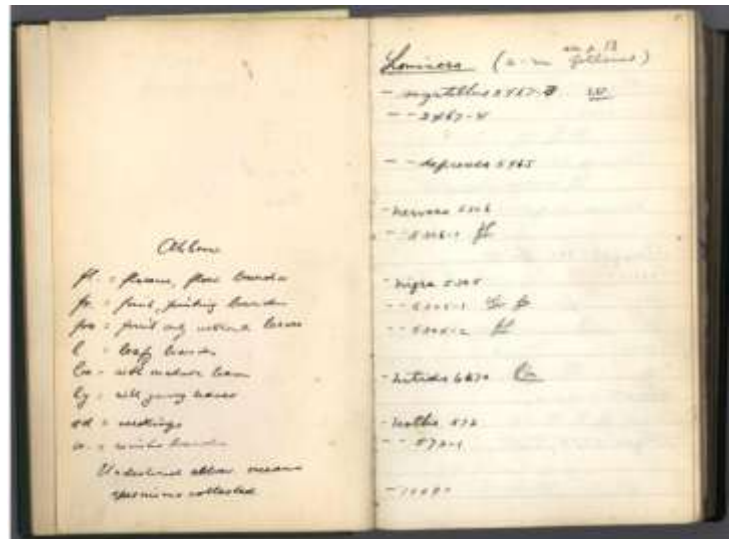 Abbrev
fl. = flowers, flower branch
fr. = fruit, fruiting branch
fro = fruit only without leaves
l = leafy branch
lm = with mature leaves
ly = with young leaves
sd = seedlings
w. = winter branch
Underlined abbrev means
specimens collected
Lonicera (a-m see p. 13 followed)
- myrtillus 2467-3
- - 2467-4
- - depressa 5465
- nervosa 5306
- - 5306-1 fl
- nigra 5305
- - 5305-1
- - 5305-2 fl
- nitida 6670 lm
- notha 572
- - 572-1